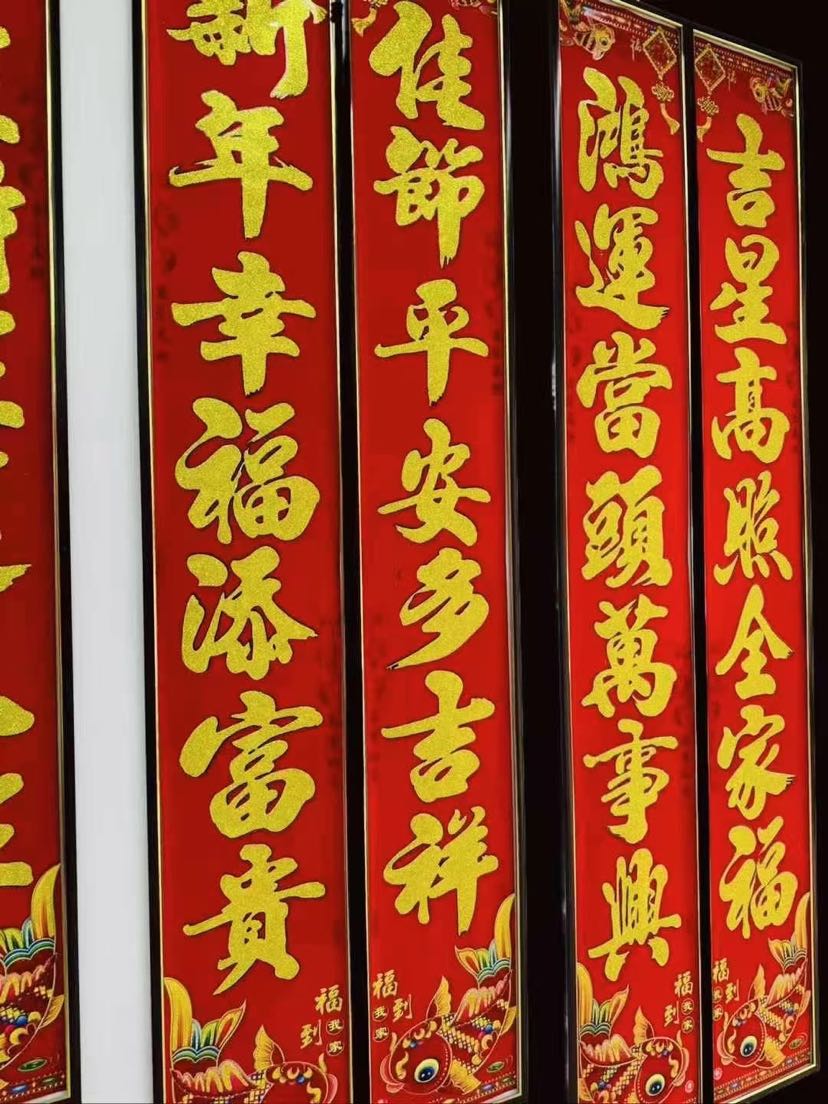 吉星高照全家福
福到我家
鴻運當頭萬事興
福到我家
佳節平安多吉祥
福到我家
新年幸福添富貴
福到我家